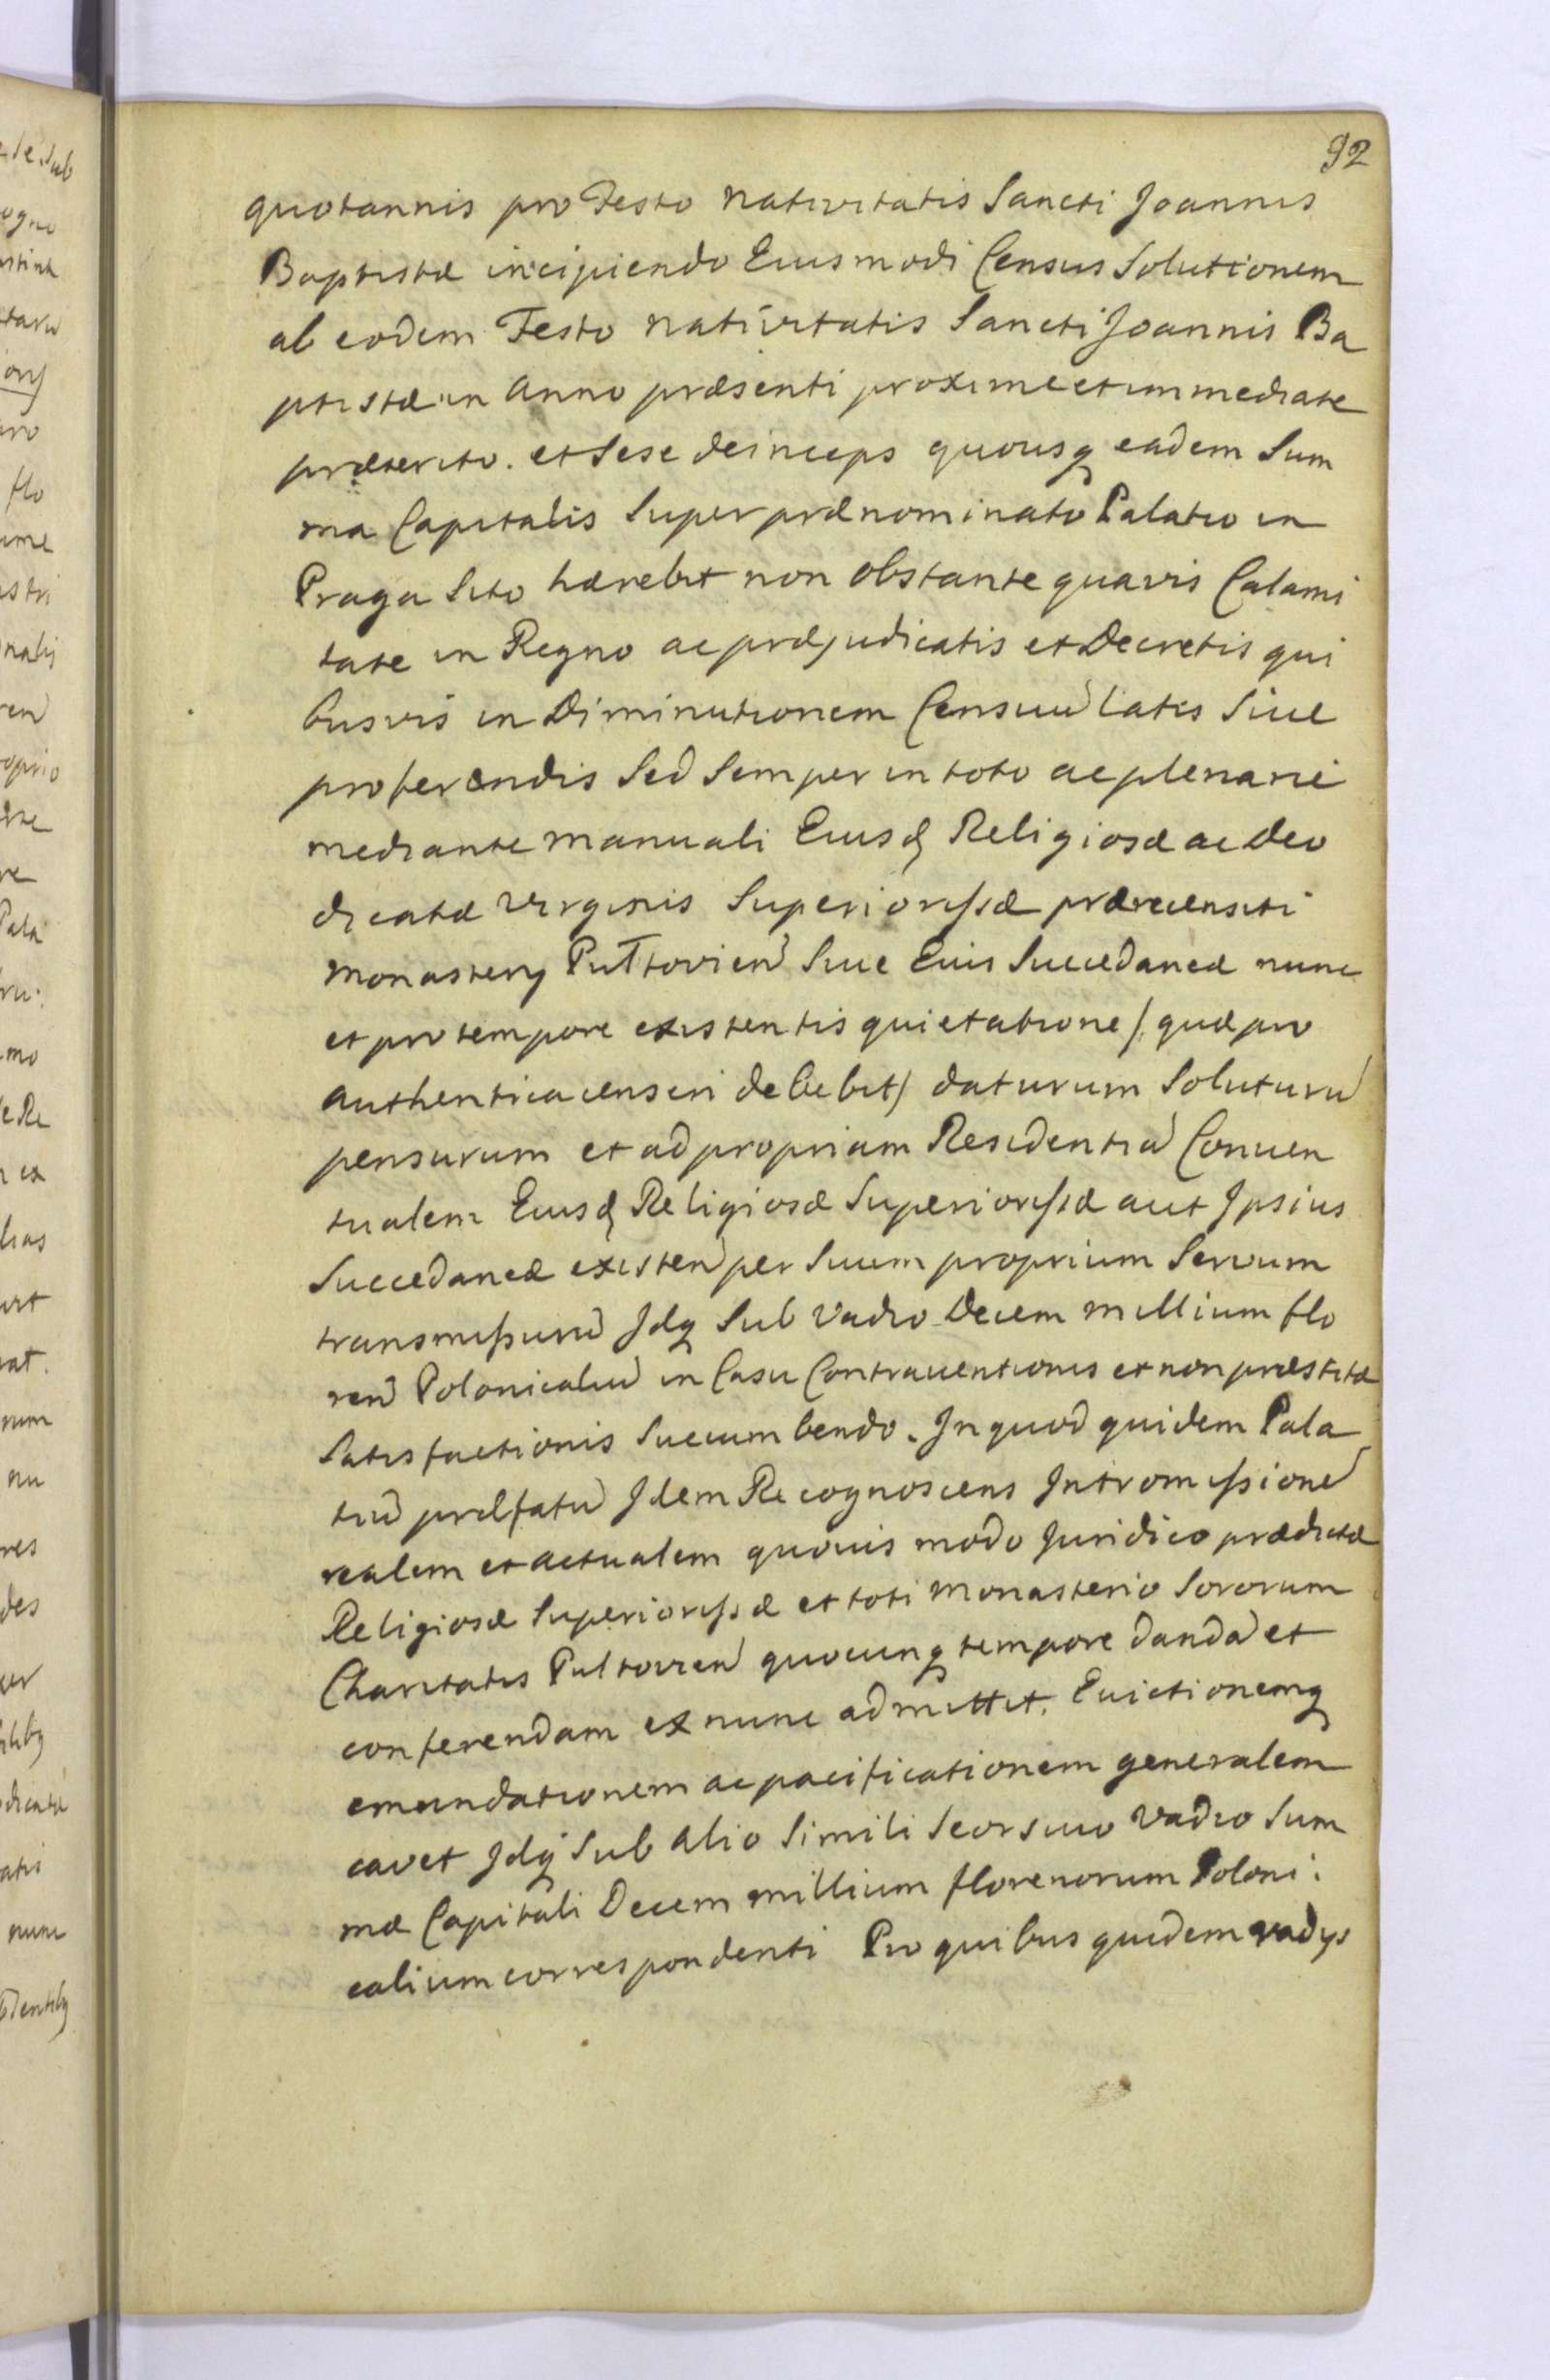 92
quotannis pro Festo nativitatis Sancti Joannis
Baptistæ incipiendo Eiusmodi Census Solutionem
ab eodem Festo nativitatis Sancti Joannis Ba
ptistæ in Anno præsenti proxime et immediate
præterito. et Sese deinceps quousq eadem Sum
ma Capitalis Super prænominato Palatio in
Praga Sito hærebit non obstante quavis Calami
tate in Regno ac præjudicatis et Decretis qui
busvis in Diminutionem Censuũ latis Siue
proferendis Sed Semper in toto ac plenarie
mediante manuali Eiusd Religiosæ ac Deo
dicatæ virginis Superiorissæ prærecensiti
monastery Pultovien Siue Eius Succedaneæ nunc
et pro tempore existentis quietatione /: quæ pro
authentica censeri debebit/ daturum Soluturũ
pensurum et ad propriam Residentiã Conuen
tualem Eiusd Religiosæ Superiorissæ aut Jpsius
Succedaneæ existen per Suum proprium Servum
transmissurũ Jdq Sub vadio Decem millium flo
ren Polonicaliũ in Casu Contrauentionis et non præstitæ
Satisfactionis Succumbendo. Jn quod quidem Pala
tiũ præfatũ Jdem Recognoscens Jntromissionẽ
realem et actualem quouis modo Juridico prædictæ
Religiosæ Superiorissæ et toti monasterio Sororum
Charitatis Pultovien quocunq tempore dandã et
conferendam ex nunc admittit. Euictionemq
emundationem ac pacificationem generalem
cavet Jdq Sub alio Simili Seorsiuo vadio Sum
mæ Capitali Decem millium florenorum Poloni:
calium correspondenti Pro quibus quidem vadys